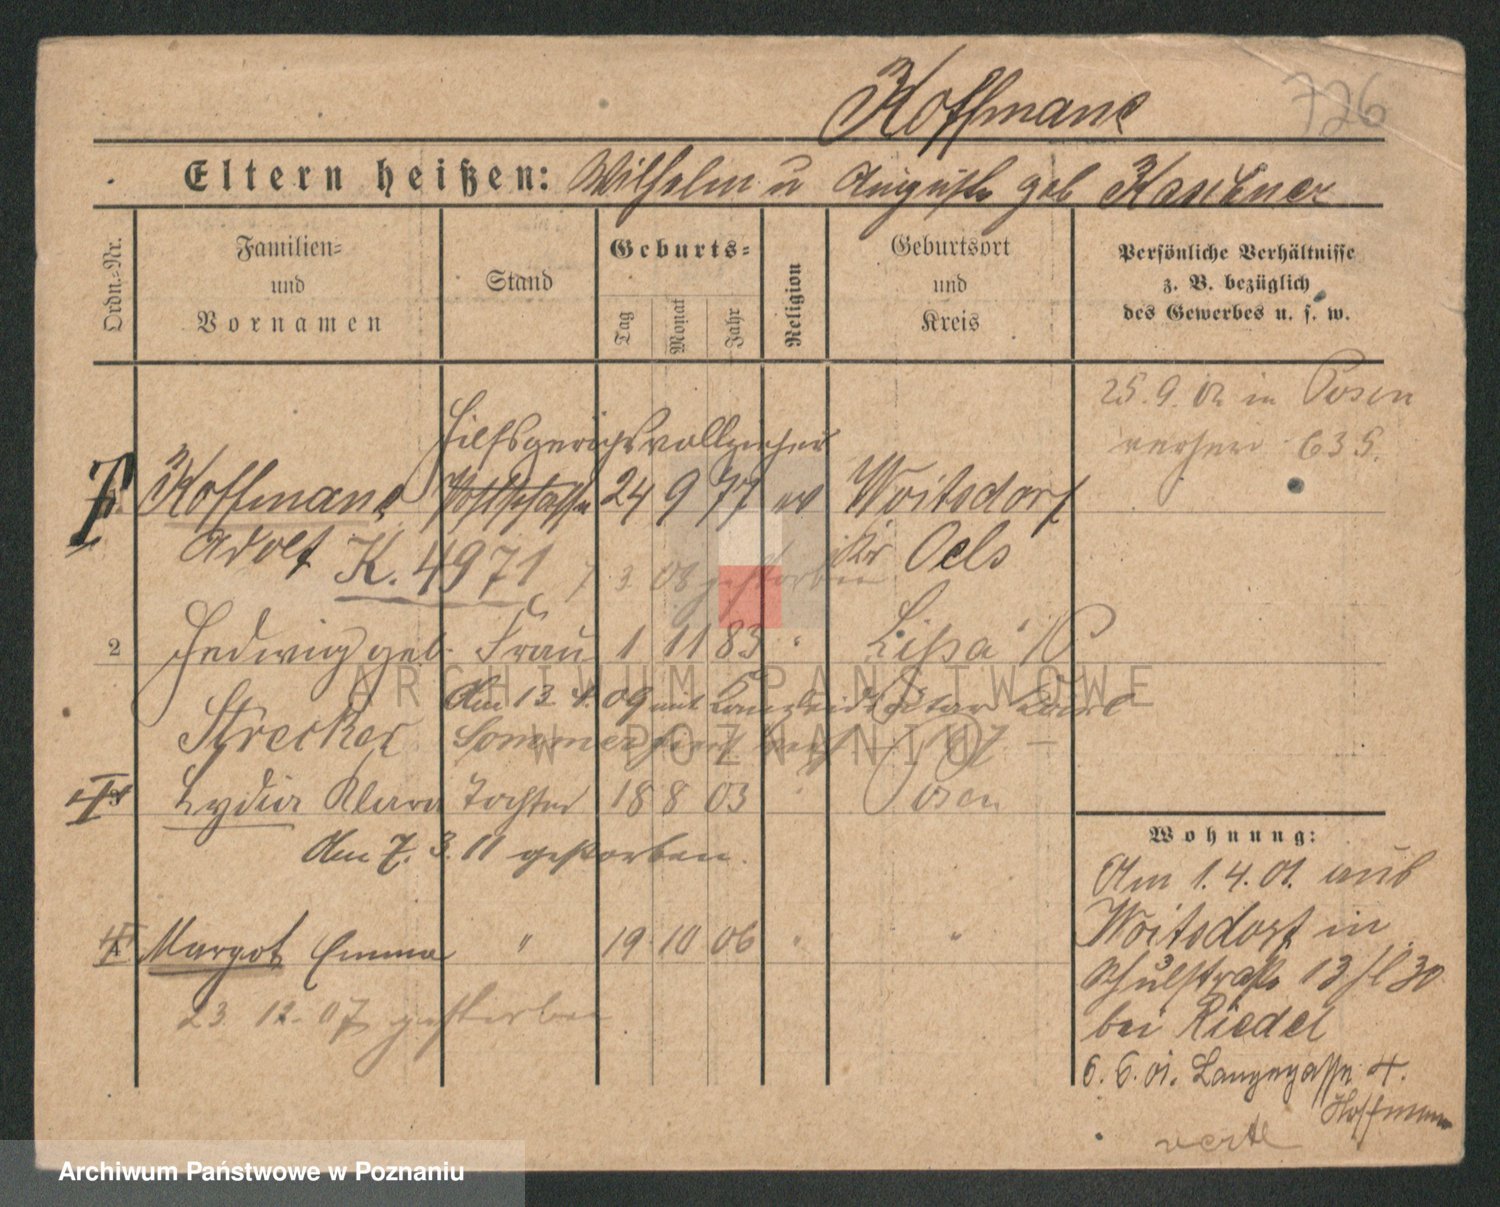 Hoffmann
726
Eltern heißen: Wilhelm u Auguste geb
Ordn.-Nr.
Familien= und Vornamen
Stand
Geburts=
Tag
Monat
Jahr
Religion
Geburtsort und Kreis
Persönliche Verhältnisse
z. B. bezüglich
des Gewerbes u. s. w.
25. 9. 02 in Posen
635.
Hilfsgerichtsvollzieher
Hoffmann 24 9 77 ev Woitsdorf
Adolf K. 4971 Kr Oels
7 3 08 gestorben
2 Hedwig geb. Frau 1 11 83 " Lissa
Strecker Am 13. 4. 09 mit
Sommer
3 Lydia Klara Tochter 18 8 03 " Posen
Am 7. 3. 11 gestorben.
4 Margot Emma " 19 10 06 " "
23. 12. 07 gestorben
Wohnung:
Am 1. 4. 01. aus
Woitsdorf in
Schulstraße 13
bei Riedel
6. 6. 01. Langegasse 4.
Hoffmann
ARCHIWUM PAŃSTWOWE
W POZNANIU
Archiwum Państwowe w Poznaniu